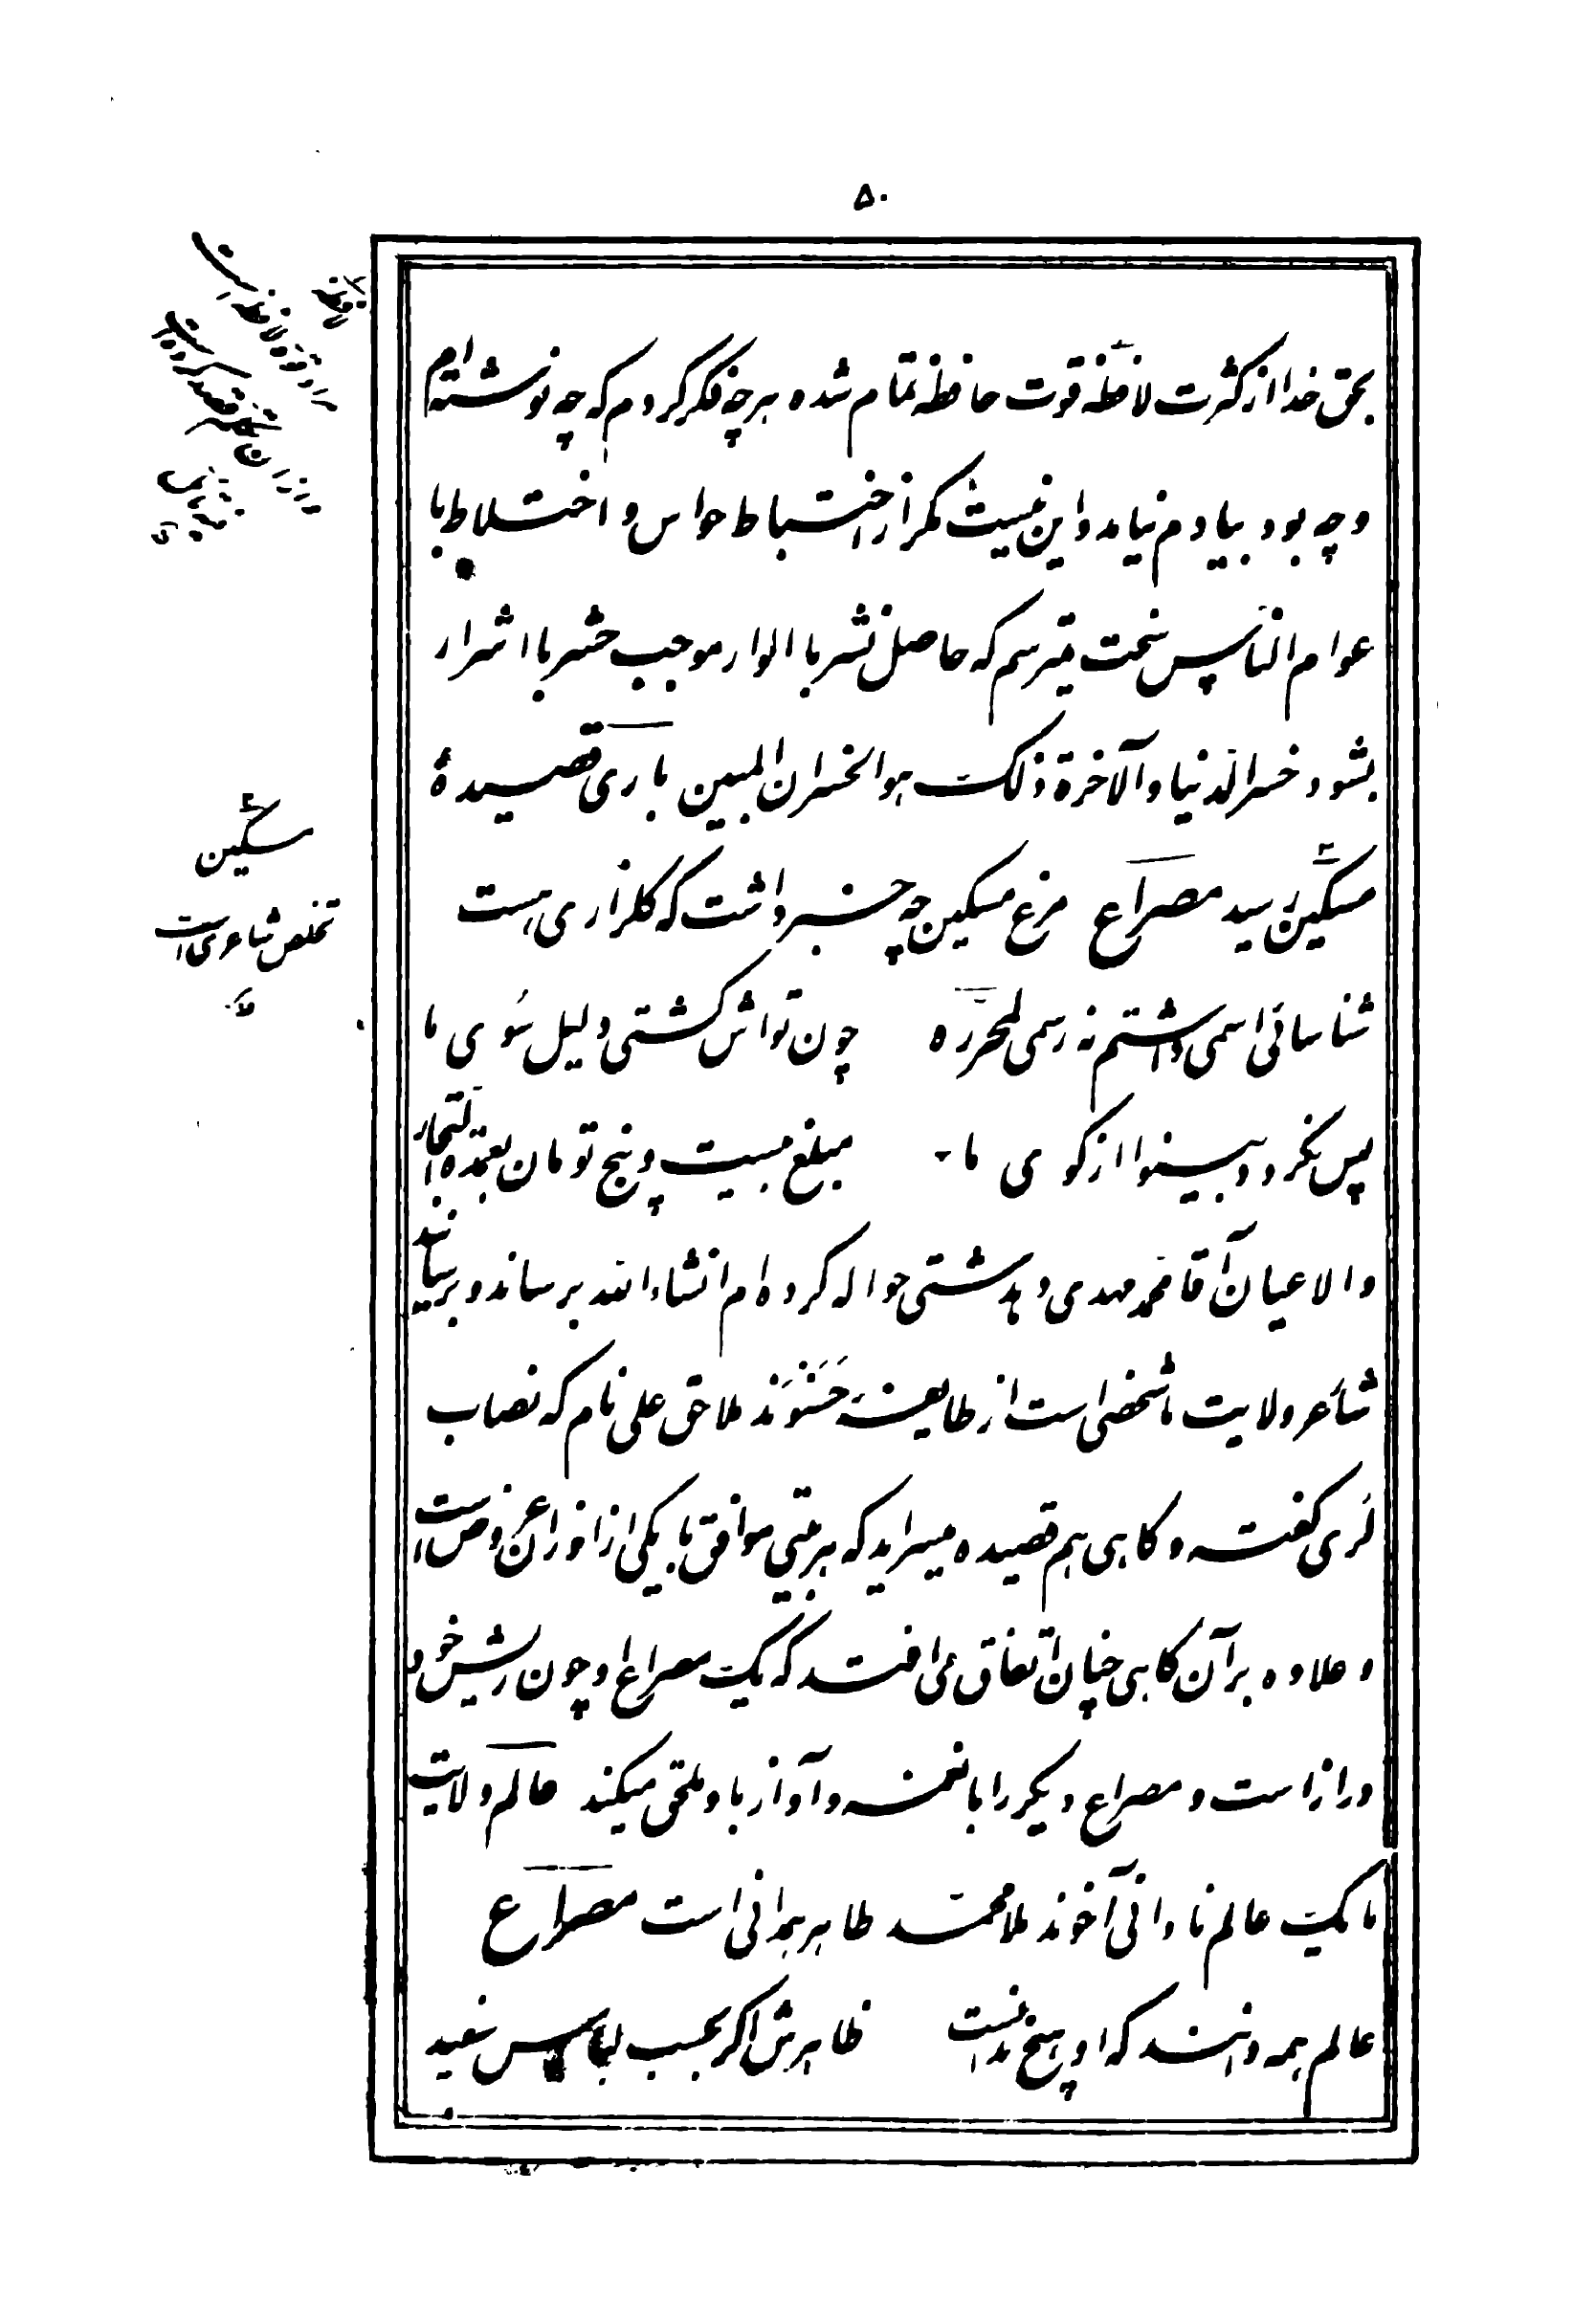 ۵۰
بحق خدا از کثرت لافظه قوت حافظه تمام شده هرچه فکر کردم که چه نوشته‌ام
و چه بود بیادم نیامد و این نیست مگر از اختباط حواس و اختلاط با
عوام الناس سخت میترسم که حاصل نشر با الوار موجب حشر با اشرار
بشود خسر الدنیا و آلاخرة ذلک هو الخسران المبین باری قصیدهٔ
مسکین رسید مصراع مرغ مسکین چه خبر داشت که کلزاری هست
شناسائی اسمی داشتم نه رسمی لمحرره چون تواش کشتی دلیل سوی ما
پس نکردد بینوا از کوی ما مبلغ بیست و پنج تومان بعمدة التجار
والاعیان آقا محمد مهدی دهدشتی حواله کرده‌ام انشاء الله برساند و برسانید
شاعر ولایت ما شخصی است از طایفه حَسَنوَند ملا حق علی نام که نصاب
لری کفته و کاهی هم قصیده میسراید که هر بیتی موافق با یکی از اوزان عروض است
و علاوه بر آن کاهی چنان اتفاق می افتد که یک مصراع او چون ریش خود
دراز است و مصراع دیکر را با نغمه و آواز باو ملحق میکند عالم ولایت
ما یک عالم نادانی آخوند ملا محمد طاهر همدانی است مصراع
عالم همه دانند که او هیچ ندانست ظاهرش اکر بحسب لباس سفید
مسکین
تخلص شاعری است